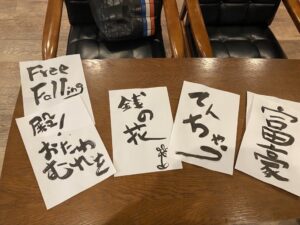 Free
Falling
殿!
おたわ
むれを
銭
の
花
てん
ちゃら
富豪